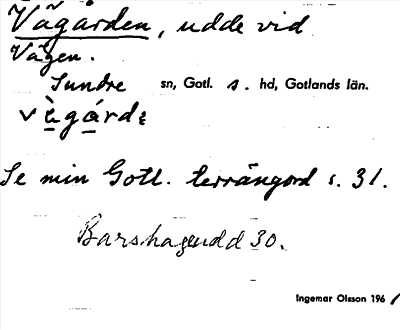 Vägården, udde vid
Vägen.
Sundre sn, Gotl. s. hd, Gotlands län.
Se min Gotl. terrängord s. 31.
Barshageudd 30.
Ingemar Olsson 196